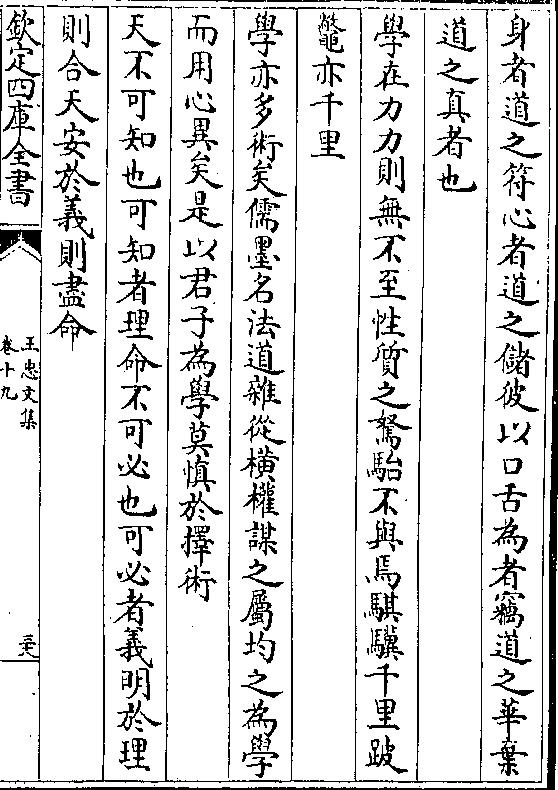 身者道之符心者道之儲彼以口舌為者竊道之華棄
道之真者也
學在力力則無不至性質之駑駘不與焉騏驥千里跛
鼈亦千里
學亦多術矣儒墨名法道雜從橫權謀之屬均之為學
而用心異矣是以君子為學莫慎於擇術
天不可知也可知者理命不可必也可必者義明於理
則合天安於義則盡命
欽定四庫全書
王忠文集
卷十九